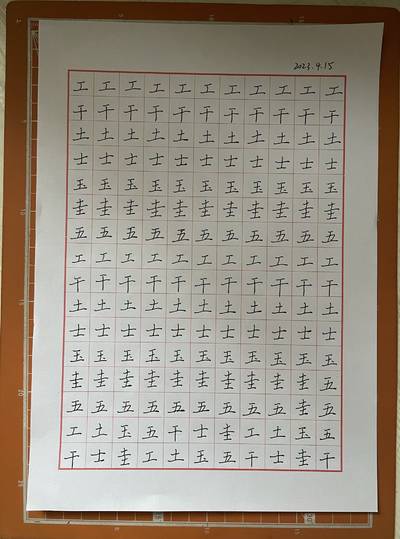 2023.4.15
工工工工工工工工工工工
干干干干干干干干干干干
土土土土土土土土土土土
士士士士士士士士士士士
玉玉玉玉玉玉玉玉玉玉玉
圭圭圭圭圭圭圭圭圭圭圭
五五五五五五五五五五五
工工工工工工工工工工工
干干干干干干干干干干干
土土土土土土土土土土土
士士士士士士士士士士士
玉玉玉玉玉玉玉玉玉玉玉
圭圭圭圭圭圭圭圭圭圭五
五五五五五五五五五圭五
工土玉五干士圭工工玉五
干士圭工土玉五干士圭干